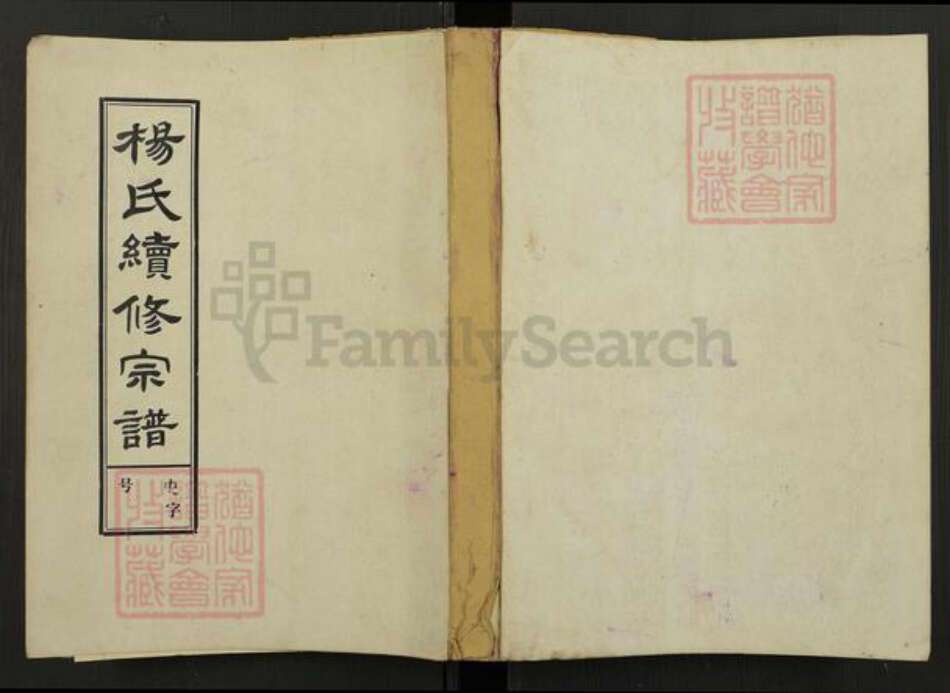 楊氏續修宗譜
史字
号
猶他家
譜學會
收藏
猶他家
譜學會
收藏
FamilySearch